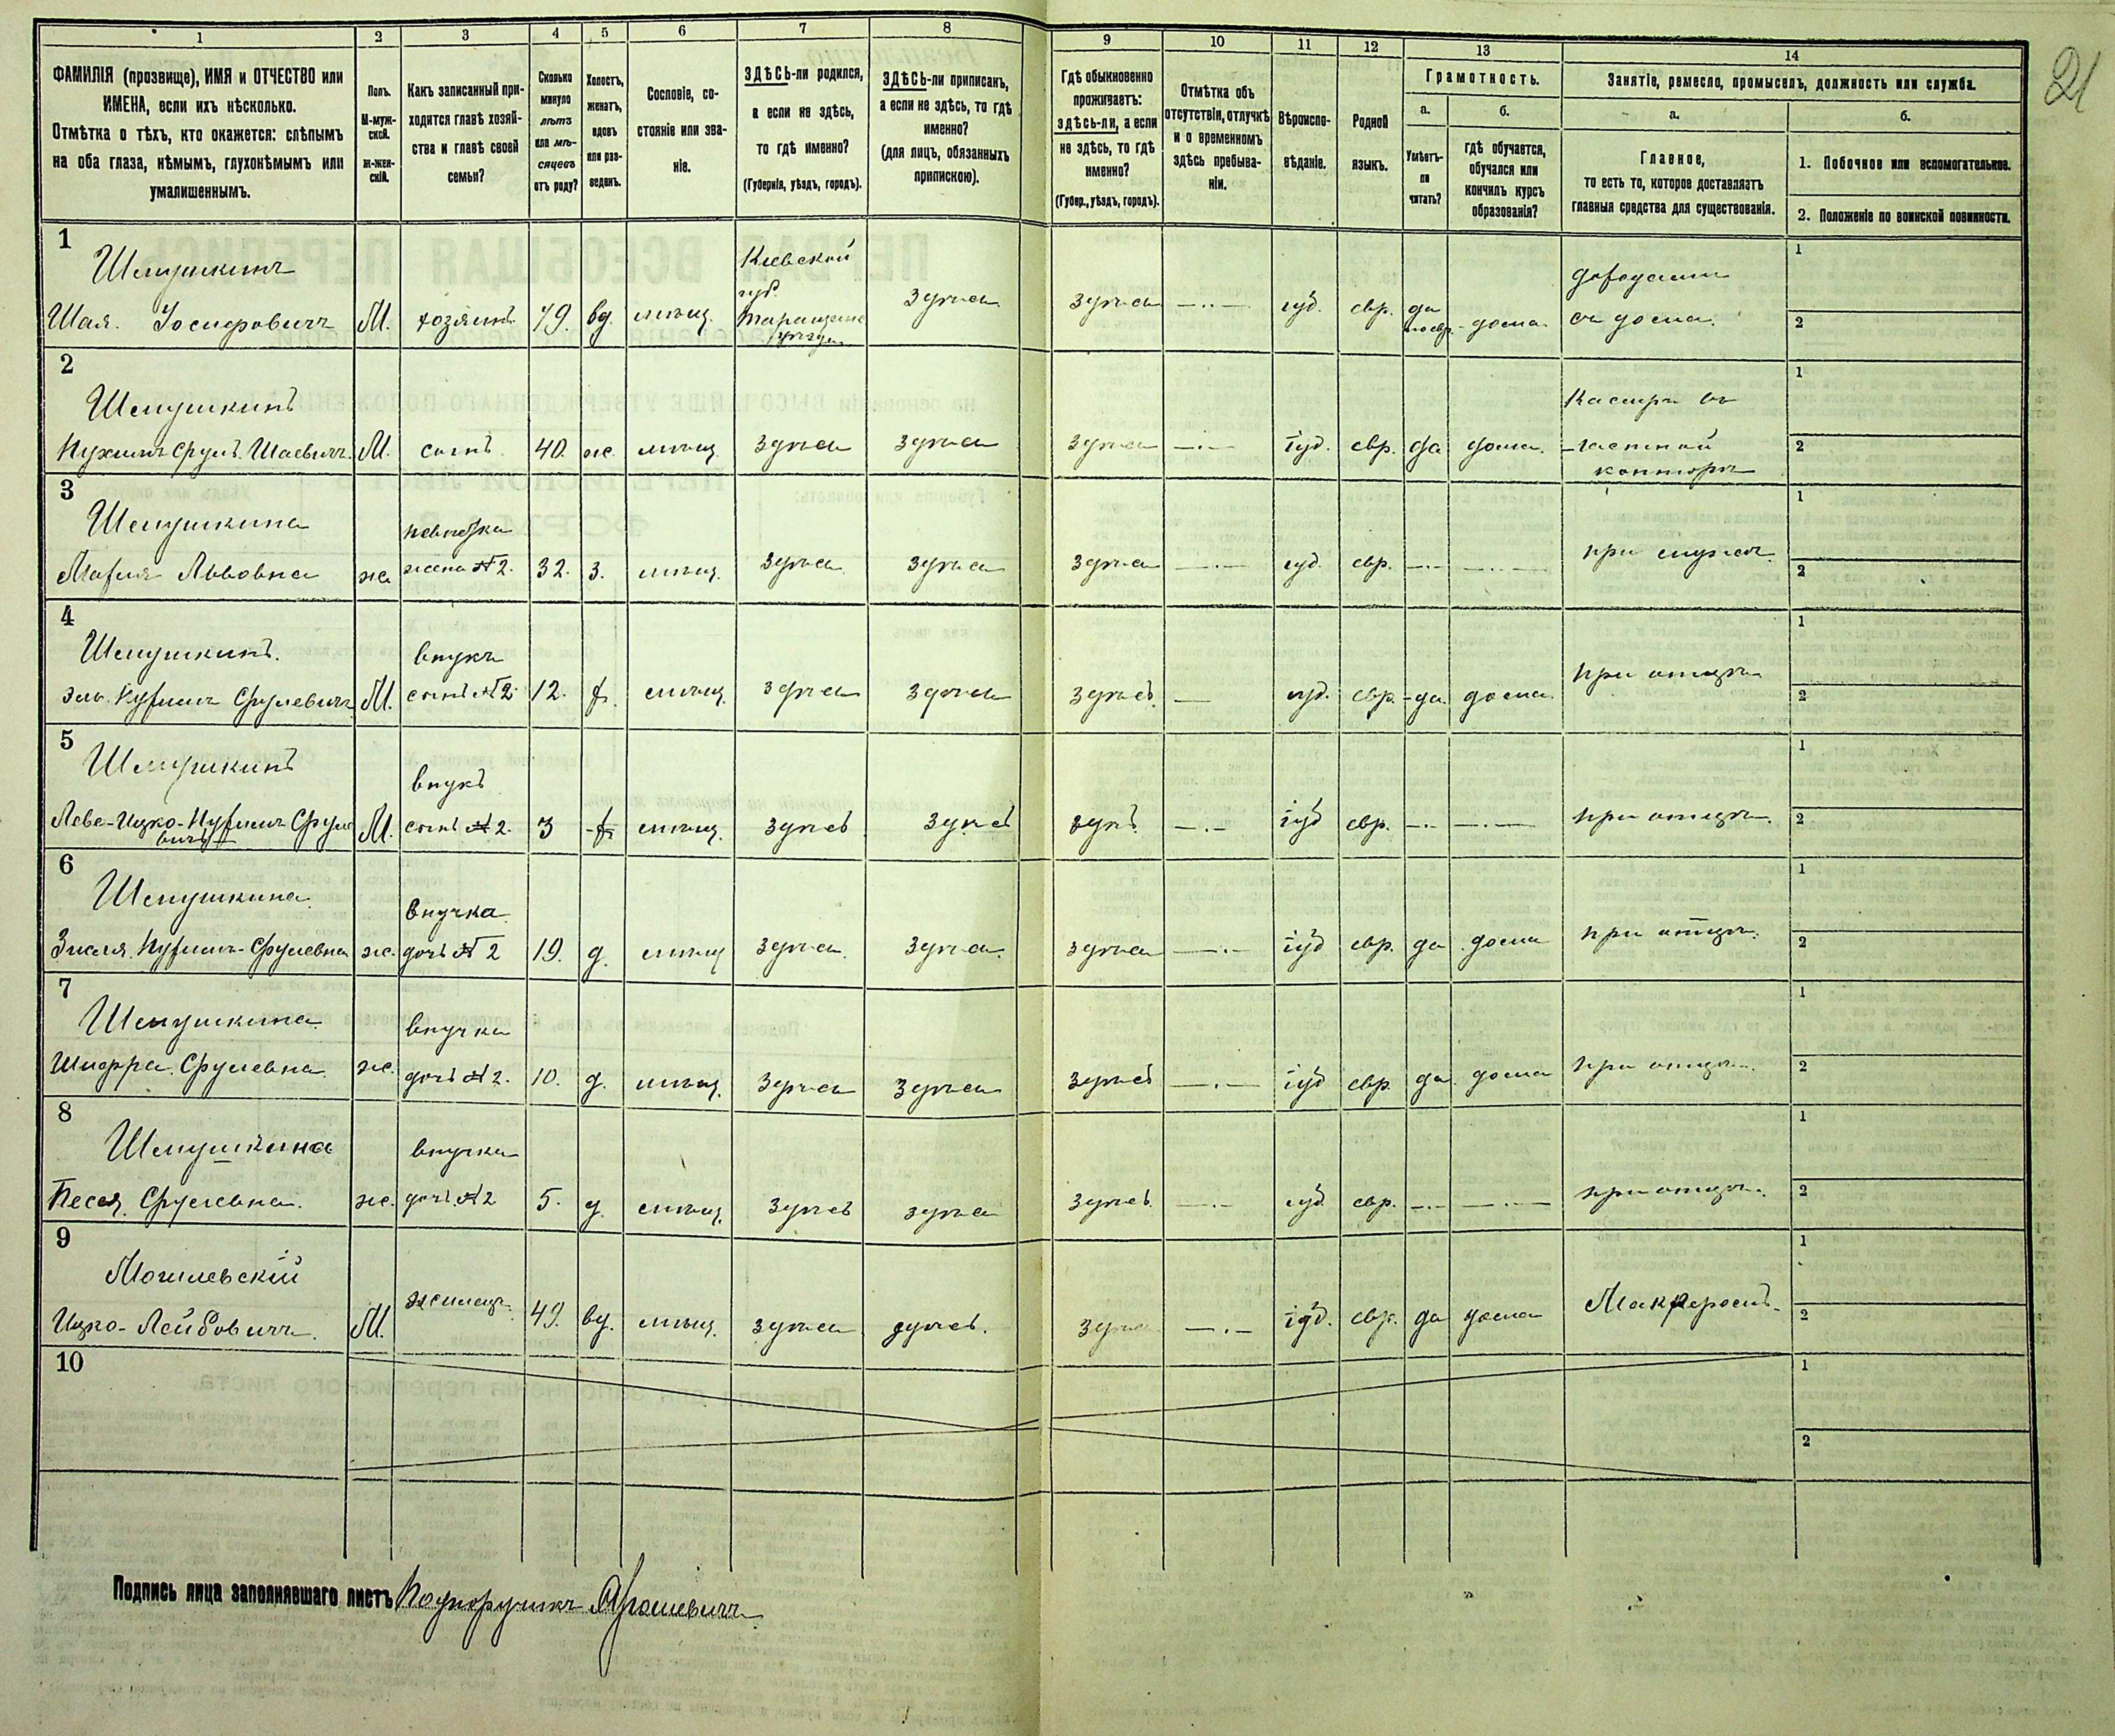 1 2 3 4 5 6 7 8 9 10 11 12 13 14
21
ФАМИЛІЯ (прозвище), ИМЯ и ОТЧЕСТВО или
ИМЕНА, если ихъ нѣсколько.
Отмѣтка о тѣхъ, кто окажется: слѣпымъ
на оба глаза, нѣмымъ, глухонѣмымъ или
умалишеннымъ.
Полъ.
М-муж-
ской.
Ж-жен-
скій.
Какъ записанный при-
ходится главѣ хозяй-
ства и главѣ своей
семьи?
Сколько
минуло
лѣтъ
или мѣ-
сяцевъ
отъ роду?
Холостъ,
женатъ,
вдовъ
или раз-
веденъ.
Сословіе, со-
стояніе или зва-
ніе.
ЗДѢСЬ-ли родился,
а если не здѣсь,
то гдѣ именно?
(Губернія, уѣздъ, городъ).
ЗДѢСЬ-ли приписанъ,
а если не здѣсь, то гдѣ
именно?
(для лицъ, обязанныхъ
припискою).
Гдѣ обыкновенно
проживаетъ:
здѣсь-ли, а если
не здѣсь, то гдѣ
именно?
(Губер., уѣздъ, городъ).
Отмѣтка объ
отсутствіи, отлучкѣ
и о временномъ
здѣсь пребыва-
ніи.
Вѣроиспо-
вѣданіе.
Родной
языкъ.
Грамотность.
а.
Умѣетъ-
ли
читать?
б.
гдѣ обучается,
обучался или
кончилъ курсъ
образованія?
Занятіе, ремесло, промыселъ, должность или служба.
а.
Главное,
то есть то, которое доставляетъ
главныя средства для существованія.
б.
1. Побочное или вспомогательное.
2. Положеніе по воинской повинности.
1
Шемушкинъ
Шая. Іосифовичъ М. хозяинъ 79. вд. мѣщ. Кіевской губ. Таращанс уѣзда здѣсь
здѣсь іуд. евр. да по евр. дома доходами съ дома. 1 2
2
Шемушкинъ
Нухимъ Срулъ. Шаевичъ. М. сынъ. 40. ж. мѣщ. здѣсь здѣсь
здѣсь іуд. евр. да дома. Кассиръ въ частной конторѣ 1 2
3
Шемушкина
Марія Львовна ж. невѣстка жена № 2. 32. з. мѣщ. здѣсь здѣсь
здѣсь іуд. евр. при мужѣ 1 2
4
Шемушкинъ.
Нухим Срулевичъ М. внукъ сынъ № 2 12. х. мѣщ здѣсь здѣсь
здѣсь. іуд. евр. да. дома. при отцѣ 1 2
5
Шемушкинъ
Лейб-Ицко-Нухим Срулевичъ М. внукъ сынъ № 2. 3 х. мѣщ. здѣсь здѣсь
здѣсь іуд евр. при отцѣ. 1 2
6
Шемушкина.
Нухим-Срулевна ж. внучка. дочь № 2 19. д. мѣщ здѣсь. здѣсь.
здѣсь іуд евр. да дома при отцѣ. 1 2
7
Шемушкина
Шифра. Срулевна. ж. внучка дочь № 2. 10. д. мѣщ. здѣсь здѣсь
здѣсь іуд евр. да дома при отцѣ. 1 2
8
Шемушкина
Песся. Срулевна. ж. внучка дочь № 2 5. д. мѣщ. здѣсь здѣсь
здѣсь іуд евр. при отцѣ. 1 2
9
Могилевскій
Ицко-Лейбовичъ. М. жилецъ. 49. вд. мѣщ. здѣсь здѣсь.
здѣсь іуд. евр. да дома Маклеромъ. 1 2
10 1 2
Подпись лица заполнявшаго листъ Подпоручикъ